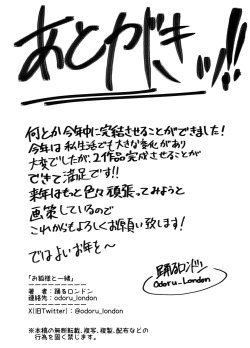 あとがきッ!!
何とか今年中に完結させることができました!
今年は私生活でも大きな変化があり
大変でしたが、2作品完成させることが
できて満足です!!
来年はもっと色々頑張ってみようと
画策しているので
これからもよろしくお願い致します!
ではよいお年を〜
踊るロンドン
Odoru_London
「お狐様と一緒」
ーーーーーーーーーー
著 者:踊るロンドン
連絡先:odoru_london
ーーーーーーーーーー
X(旧Twitter):@odoru_london
※本稿の無断転載、複写、複製、配布などの
行為を固く禁じます。